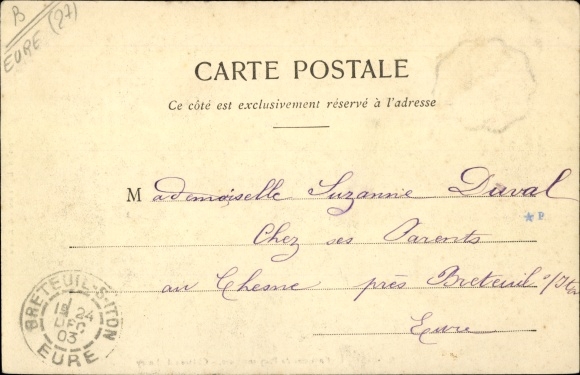 B
EURE (27)
CARTE POSTALE
Ce côté est exclusivement réservé à l'adresse
Mademoiselle Suzanne Duval
P
Chez ses Parents
au Chesne près Breteuil s/Iton
Eure
BRETEUIL-S-ITON
24
DEC
03
EURE